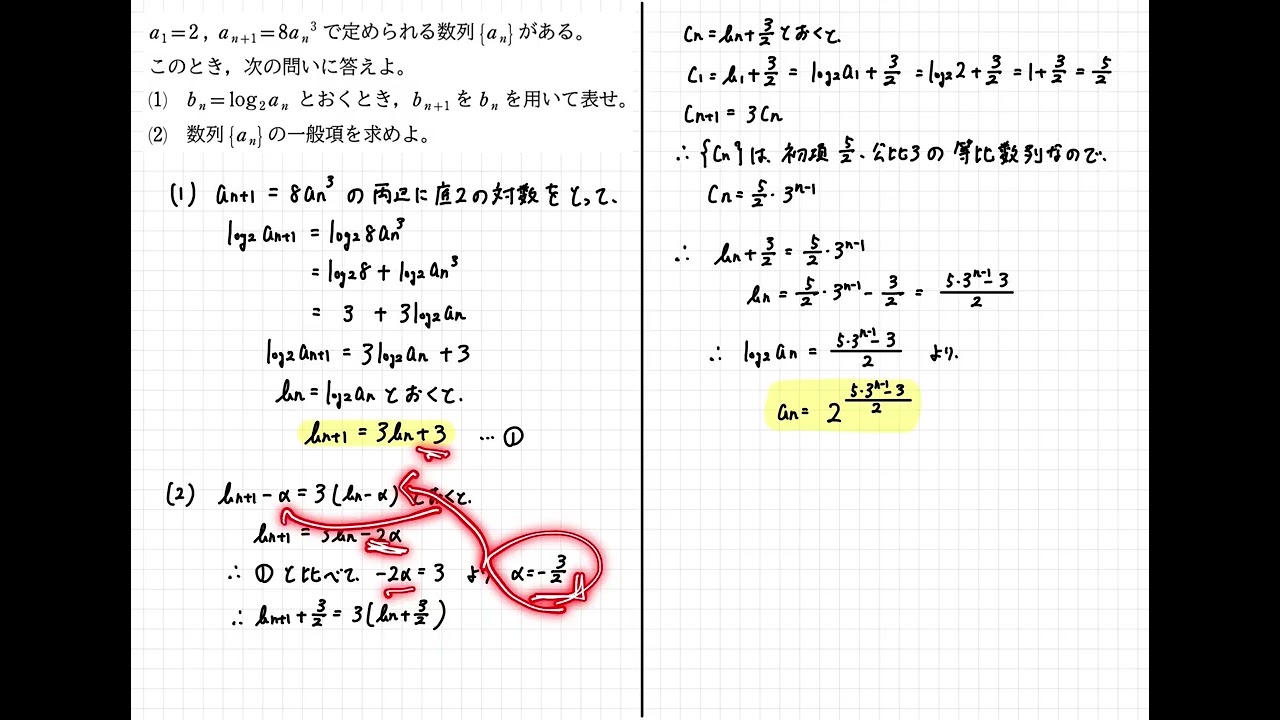 a₁=2, aₙ₊₁=8aₙ³ で定められる数列{aₙ}がある。
このとき，次の問いに答えよ。
(1) bₙ=log₂aₙ とおくとき，bₙ₊₁をbₙを用いて表せ。
(2) 数列{aₙ}の一般項を求めよ。
(1) aₙ₊₁ = 8aₙ³ の両辺に底2の対数をとって、
log₂aₙ₊₁ = log₂8aₙ³
= log₂8 + log₂aₙ³
= 3 + 3log₂aₙ
log₂aₙ₊₁ = 3log₂aₙ + 3
bₙ = log₂aₙ とおくと、
bₙ₊₁ = 3bₙ + 3 … ①
(2) bₙ₊₁ - α = 3(bₙ - α) とおくと、
bₙ₊₁ = 3bₙ - 2α
∴ ①と比べて、 -2α = 3 より α = -3/2
∴ bₙ₊₁ + 3/2 = 3(bₙ + 3/2)
Cₙ = bₙ + 3/2 とおくと、
C₁ = b₁ + 3/2 = log₂a₁ + 3/2 = log₂2 + 3/2 = 1 + 3/2 = 5/2
Cₙ₊₁ = 3Cₙ
∴ {Cₙ}は、初項 5/2、公比3の等比数列なので、
Cₙ = 5/2・3ⁿ⁻¹
∴ bₙ + 3/2 = 5/2・3ⁿ⁻¹
bₙ = 5/2・3ⁿ⁻¹ - 3/2 = (5・3ⁿ⁻¹ - 3)/2
∴ log₂aₙ = (5・3ⁿ⁻¹ - 3)/2 より、
aₙ = 2^((5・3ⁿ⁻¹ - 3)/2)